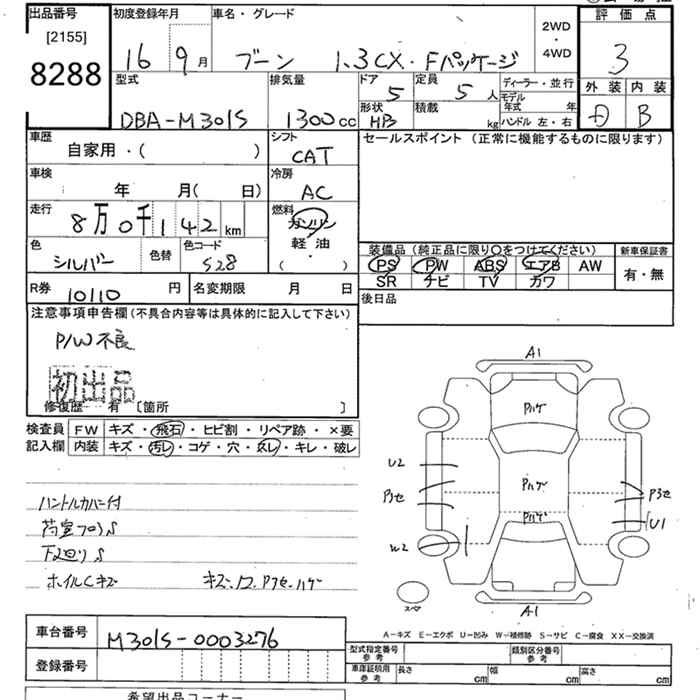 出品番号
[2155]
8288
初度登録年月
16 9月
車名・グレード
ブーン 1.3CX・Fパッケージ
2WD
・
4WD
評価点
3
外装 内装
D B
型式
DBA-M301S
排気量
1300cc
ドア
5
形状
HB
定員
5人
積載
kg
ディーラー・並行
モデル年式 年
ハンドル 左・右
車歴
自家用・( )
シフト
CAT
セールスポイント (正常に機能するものに限ります)
車検
年 月( 日)
冷房
AC
走行
8万0千142km
燃料
ガソリン
軽油
・
( )
色
シルバー
色替
色コード
S28
装備品 (純正品に限り○をつけてください)
PS PW ABS エアB AW
SR ナビ TV カワ
新車保証書
有・無
R券 10110 円
名変期限 月 日
後日品
注意事項申告欄 (不具合内容等は具体的に記入して下さい)
P/W不良
初出品
修復歴 有 [箇所 ]
検査員記入欄
FW キズ・飛石・ヒビ割・リペア跡・×要
内装 キズ・汚レ・コゲ・穴・スレ・キレ・破レ
ハンドルカバー付
荷室フロアS
下廻りS
ホイルCキズ
キズ・凹・Pアセ・ハゲ
A1
Pハゲ
U2
Pアセ
W2
Pハゲ
Pハゲ
Pアセ
U1
スペア
A1
A-キズ E-エクボ U-凹み W-補修跡 S-サビ C-腐食 XX-交換済
車台番号
M301S-0003276
登録番号
型式指定番号
参考
類別区分番号
参考
車庫証明用
参考
長さ cm
幅 cm
高さ cm
希望出品コーナー